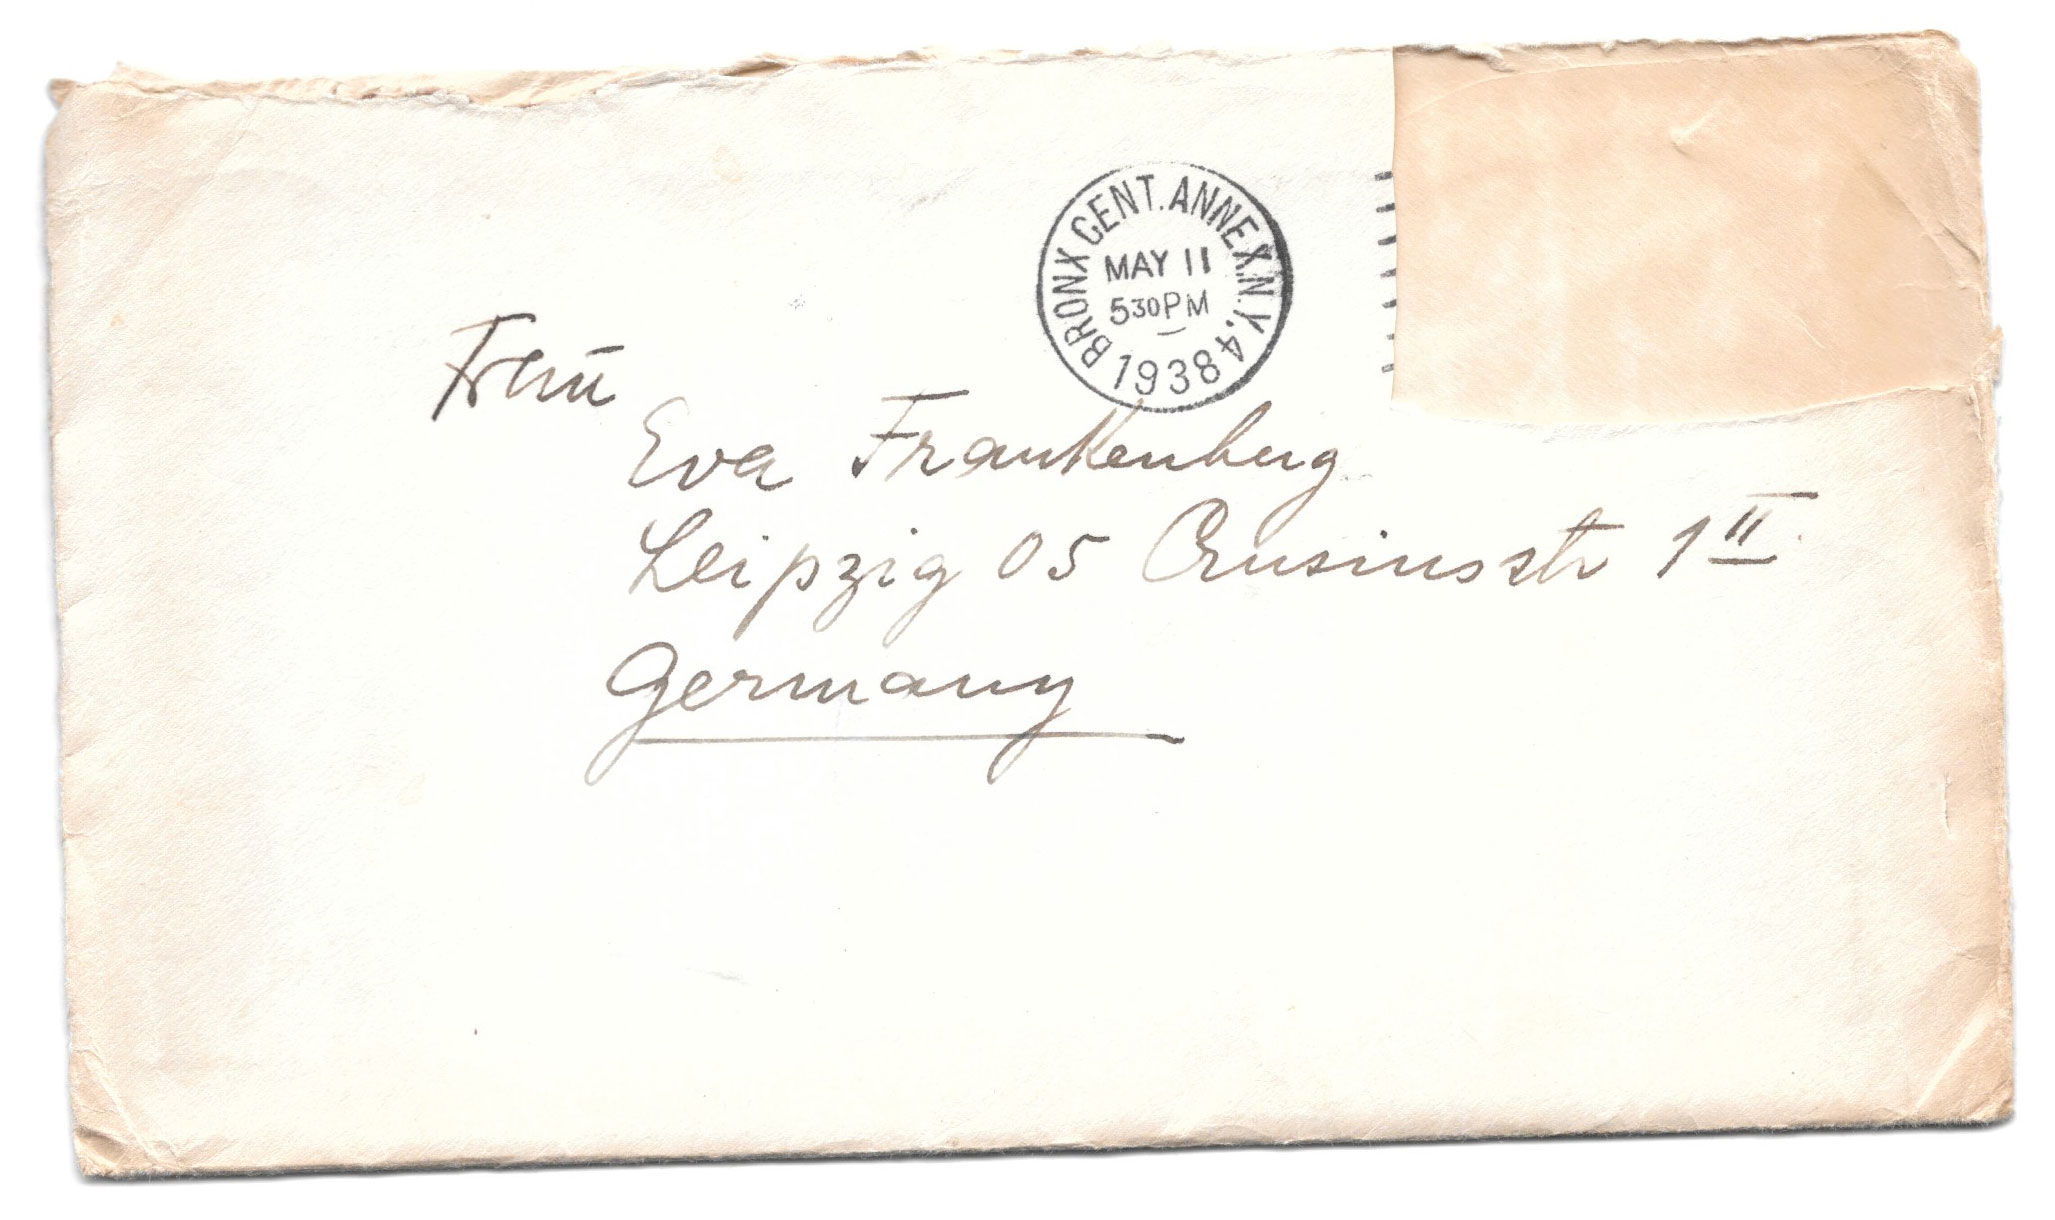 BRONX CENT. ANNEX, N.Y. 4
MAY 11
530PM
1938
Frau
Eva Frankenberg
Leipzig O5 Crusiusstr 1 II
Germany